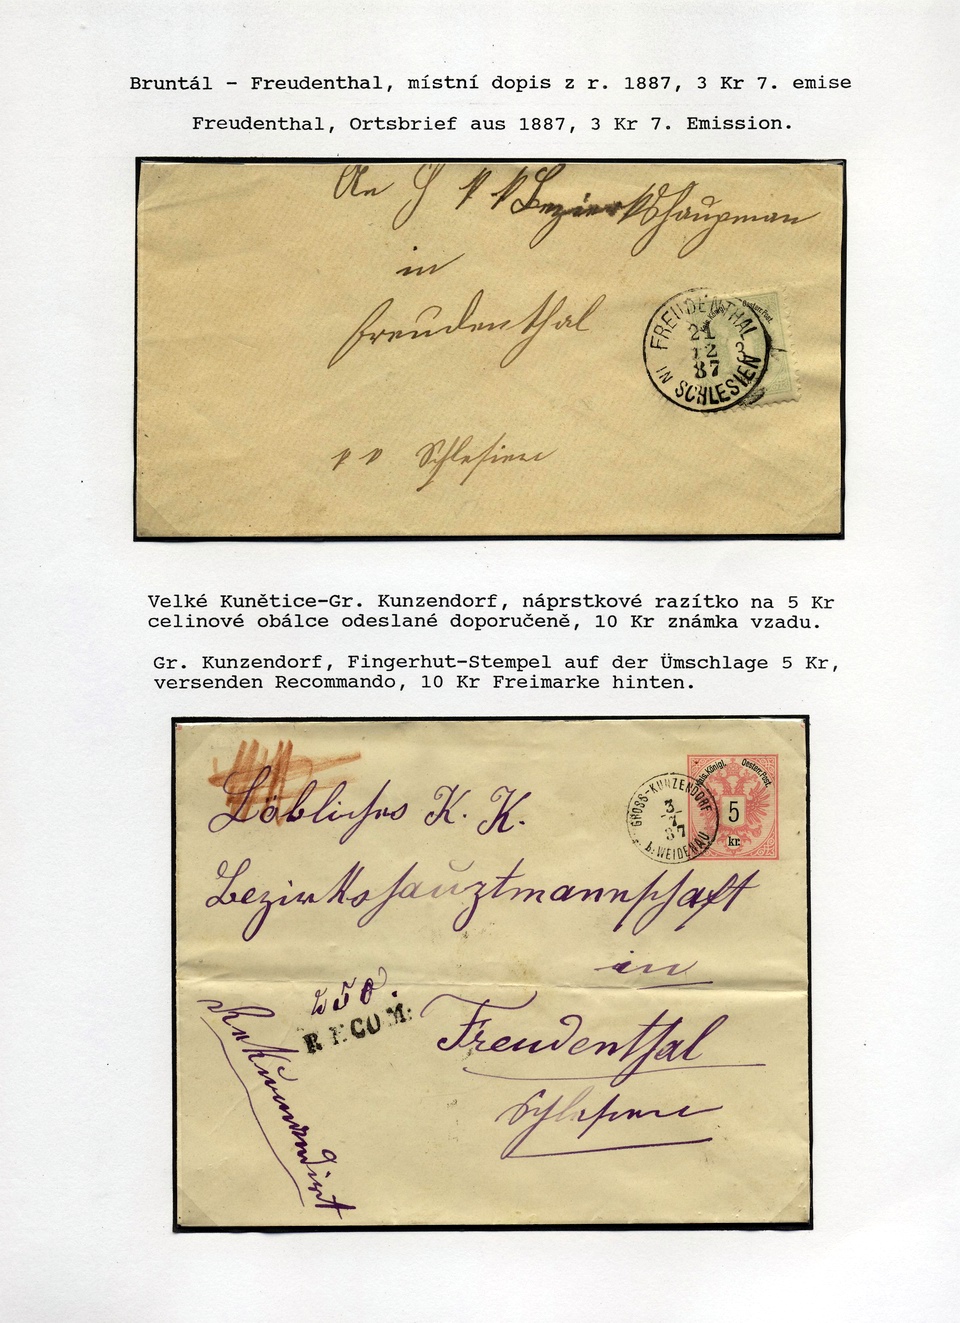 Bruntál - Freudenthal, místní dopis z r. 1887, 3 Kr 7. emise
Freudenthal, Ortsbrief aus 1887, 3 Kr 7. Emission.
An
Bezirkshaupman
in
Freudenthal
Oesterr. Post.
FREUDENTHAL
21
12 3
87
IN SCHLESIEN
Schlesien
Velké Kunětice-Gr. Kunzendorf, náprstkové razítko na 5 Kr
celinové obálce odeslané doporučeně, 10 Kr známka vzadu.
Gr. Kunzendorf, Fingerhut-Stempel auf der Ümschlage 5 Kr,
versenden Recommando, 10 Kr Freimarke hinten.
Kais. Königl. Oesterr. Post.
5
kr.
GROSS-KUNZENDORF
3
7
87
b. WEIDENAU
Löbliches K. K.
Bezirkshauptmannschaft
in
250.
RECOM:
Freudenthal
Schlesien